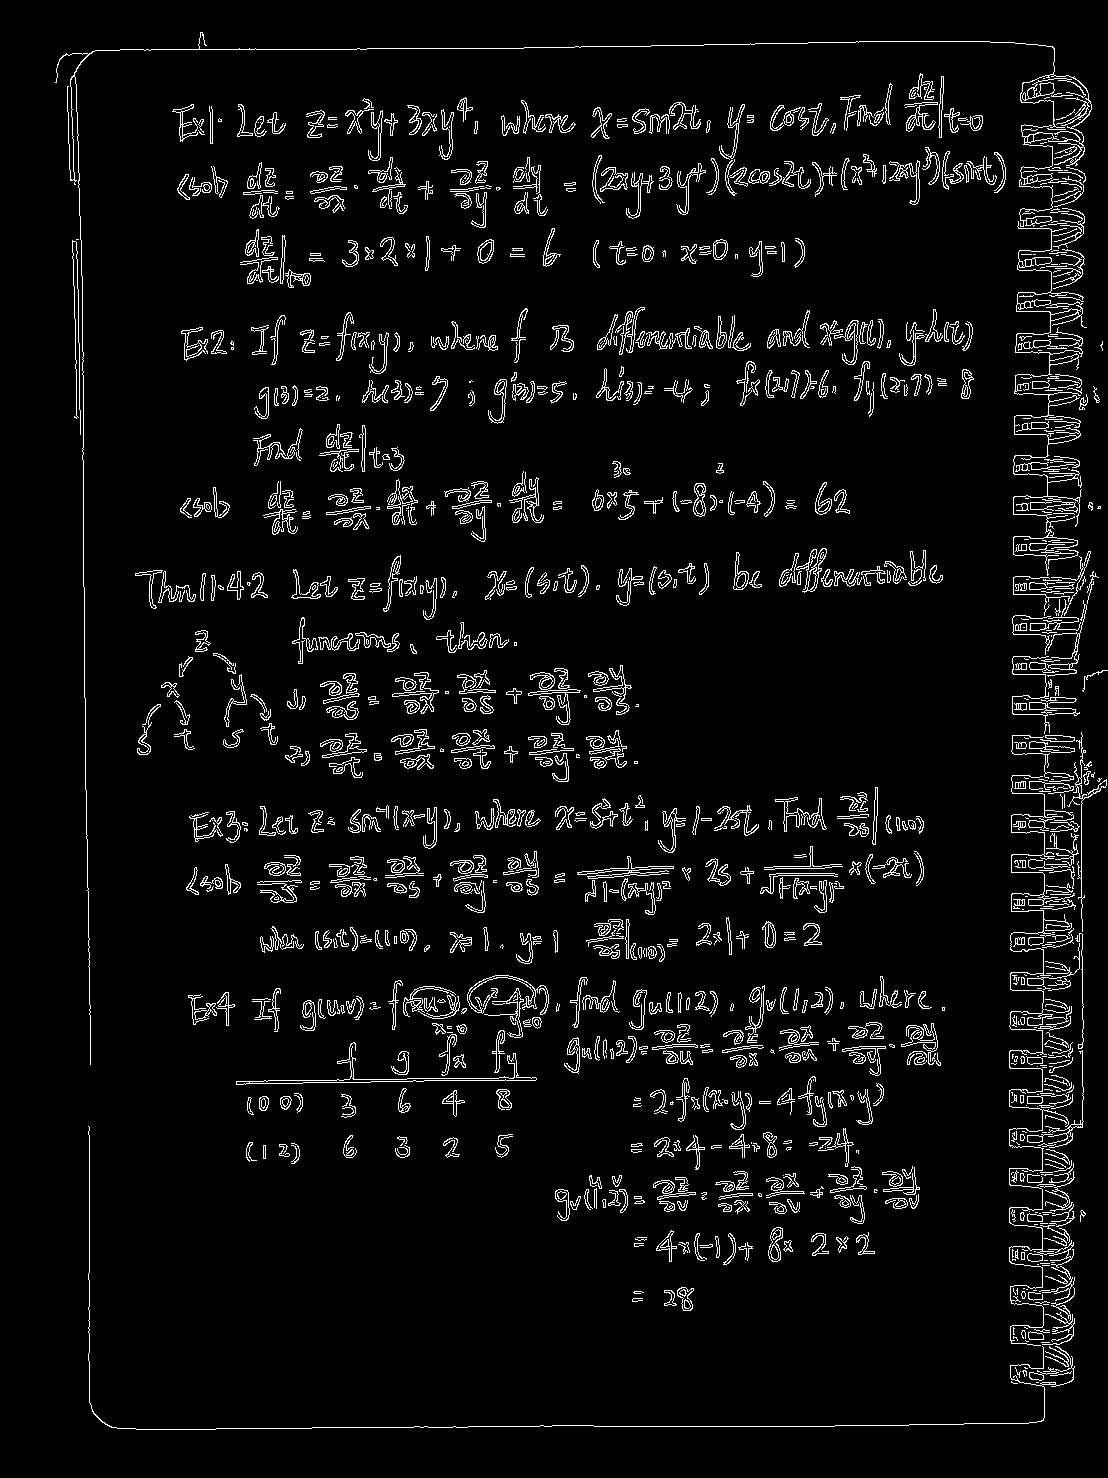 Ex1. Let z = x²y + 3xy⁴, where x = sin2t, y = cost, Find dz/dt|t=0
<sol> dz/dt = ∂z/∂x · dx/dt + ∂z/∂y · dy/dt = (2xy+3y⁴)(2cos2t)+(x²+12xy³)(-sint)
dz/dt|t=0 = 3×2×1 + 0 = 6 (t=0. x=0. y=1)
Ex2: If z=f(x,y), where f is differentiable and x=g(t), y=h(t)
g(3)=2. h(3)=7 ; g'(3)=5. h'(3)=-4 ; fx(2,7)=6. fy(2,7)=8
Find dz/dt|t=3
<sol> dz/dt = ∂z/∂x · dx/dt + ∂z/∂y · dy/dt = 6×5 + (-8)·(-4) = 62
Thm11.4.2 Let z=f(x,y), x=(s,t). y=(s,t) be differentiable
functions, then.
z
x y
s t s t
1) ∂z/∂s = ∂z/∂x · ∂x/∂s + ∂z/∂y · ∂y/∂s.
2) ∂z/∂t = ∂z/∂x · ∂x/∂t + ∂z/∂y · ∂y/∂t.
Ex3: Let z = sin⁻¹(x-y), where x=s²+t², y=1-2st, Find ∂z/∂s|(1,0)
<sol> ∂z/∂s = ∂z/∂x · ∂x/∂s + ∂z/∂y · ∂y/∂s = 1/√1-(x-y)² × 2s + -1/√1-(x-y)² × (-2t)
when (s,t)=(1,0), x=1. y=1 ∂z/∂s|(1,0) = 2×1 + 0 = 2
Ex4 If g(u,v) = f(2u-v, v²-4u), find gu(1,2), gv(1,2), where.
x=0 y=0
f g fx fy
(0 0) 3 6 4 8
(1 2) 6 3 2 5
gu(1,2) = ∂z/∂u = ∂z/∂x · ∂x/∂u + ∂z/∂y · ∂y/∂u
= 2·fx(x·y) - 4fy(x·y)
= 2×4 - 4×8 = -24.
u v
gv(1,2) = ∂z/∂v = ∂z/∂x · ∂x/∂v + ∂z/∂y · ∂y/∂v
= 4×(-1) + 8× 2×2
= 28